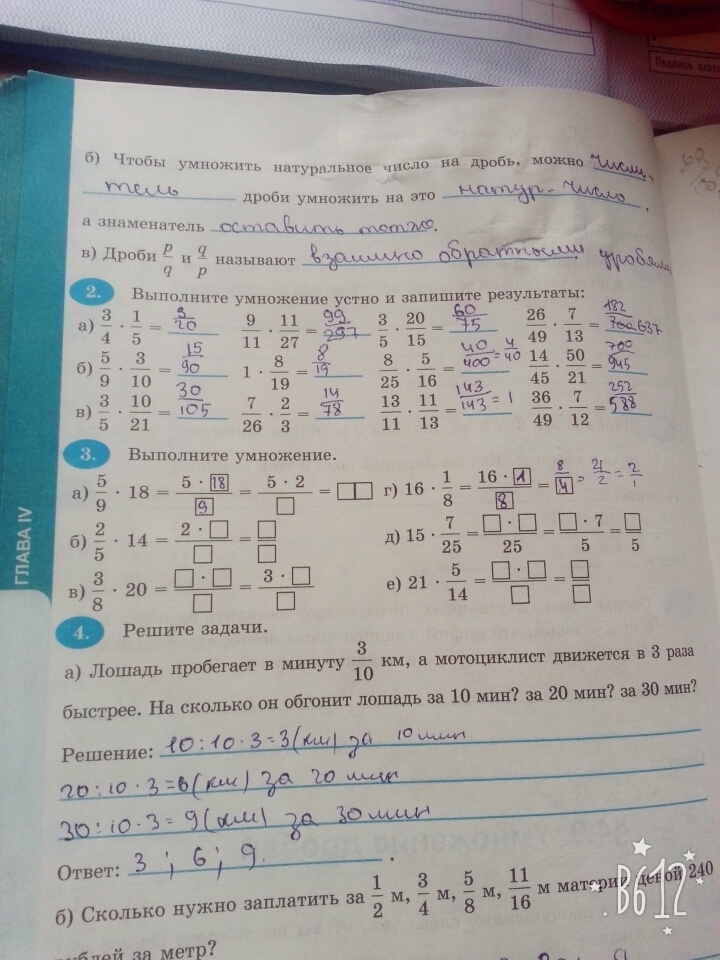 Подпись клас
ГЛАВА IV
б) Чтобы умножить натуральное число на дробь, можно числи-
тель дроби умножить на это натур- число,
а знаменатель оставить тотже.
в) Дроби p/q и q/p называют взаимно обратными дробями
2. Выполните умножение устно и запишите результаты:
а) 3/4 · 1/5 = 3/20 9/11 · 11/27 = 99/297 3/5 · 20/15 = 60/75 26/49 · 7/13 = 182/637
б) 5/9 · 3/10 = 15/90 1 · 8/19 = 8/19 8/25 · 5/16 = 40/400 = 4/40 14/45 · 50/21 = 700/945
в) 3/5 · 10/21 = 30/105 7/26 · 2/3 = 14/78 13/11 · 11/13 = 143/143 = 1 36/49 · 7/12 = 252/588
3. Выполните умножение.
а) 5/9 · 18 = 5 · 18/9 = 5 · 2/□ = □□ г) 16 · 1/8 = 16 · 1/8 = 8/4 = 2/1
б) 2/5 · 14 = 2 · □/□ = □/□ д) 15 · 7/25 = □ · □/25 = □ · 7/5 = □/5
в) 3/8 · 20 = □ · □/□ = 3 · □/□ е) 21 · 5/14 = □ · □/□ = □/□
4. Решите задачи.
а) Лошадь пробегает в минуту 3/10 км, а мотоциклист движется в 3 раза
быстрее. На сколько он обгонит лошадь за 10 мин? за 20 мин? за 30 мин?
Решение: 10:10·3=3(км) за 10 мин
20:10·3=6(км) за 20 мин
30:10·3=9(км) за 30 мин
Ответ: 3; 6; 9.
б) Сколько нужно заплатить за 1/2 м, 3/4 м, 5/8 м, 11/16 м материи ценой 240
рублей за метр?
B612